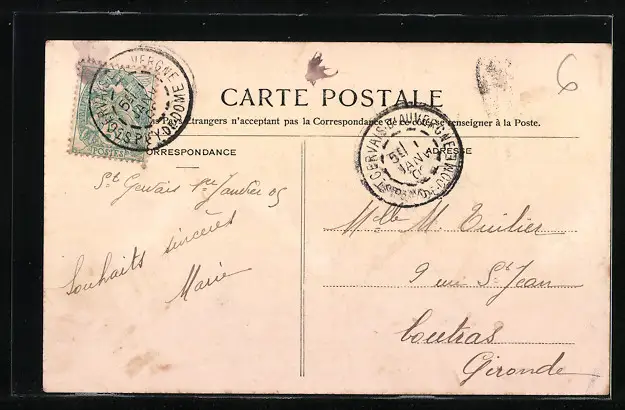 6
CARTE POSTALE
Étrangers n'acceptent pas la Correspondance renseigner à la Poste.
CORRESPONDANCE
ADRESSE
St GERVAIS-D'AUVERGNE PUY-DE-DOME
JANV
POSTES
St Gervais 1er Janvier 05
Souhaits sincères
Marie
Melle M. Tuilier
9 rue St Jean
Coutras
Gironde